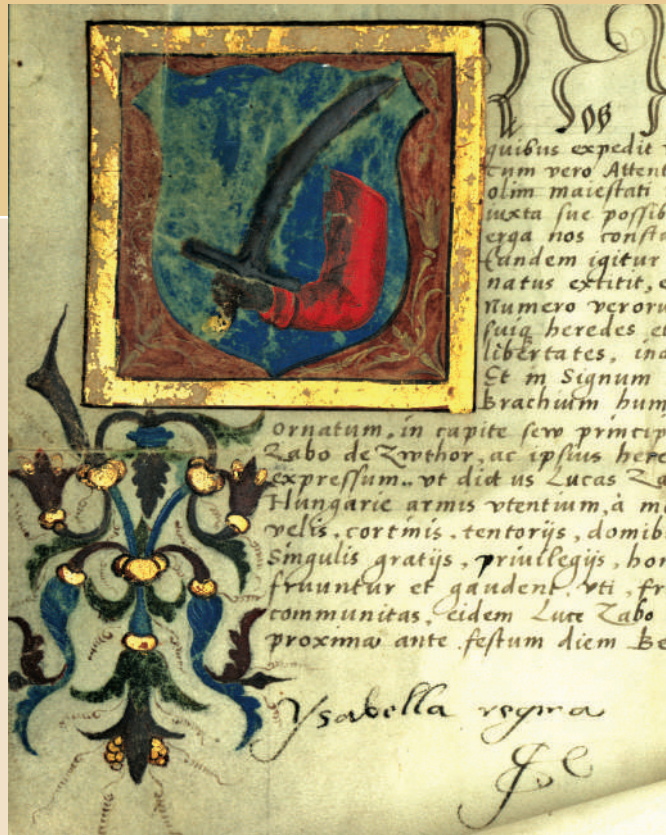 Nos
quibus expedit
tum vero Attent
olim maiestati
iuxta sue possib
erga nos consta
Eandem igitur
natus extitit, e
Numero veroru
suig heredes et
libertates, ind
Et in Signum
Brachium hum
ornatum, in capite sew princip
Zabo de Zwthor, ac ipsius here
expressum. vt dict us Lucas Za
Hungarie armis vtentium, à mo
velis, cortinis, tentorijs, domib
Singulis gratijs, priuilegijs, hon
fruuntur et gaudent. vti, fr
communitas, eidem Luce Zabo
proxima ante festum diem Be
Ysabella regina